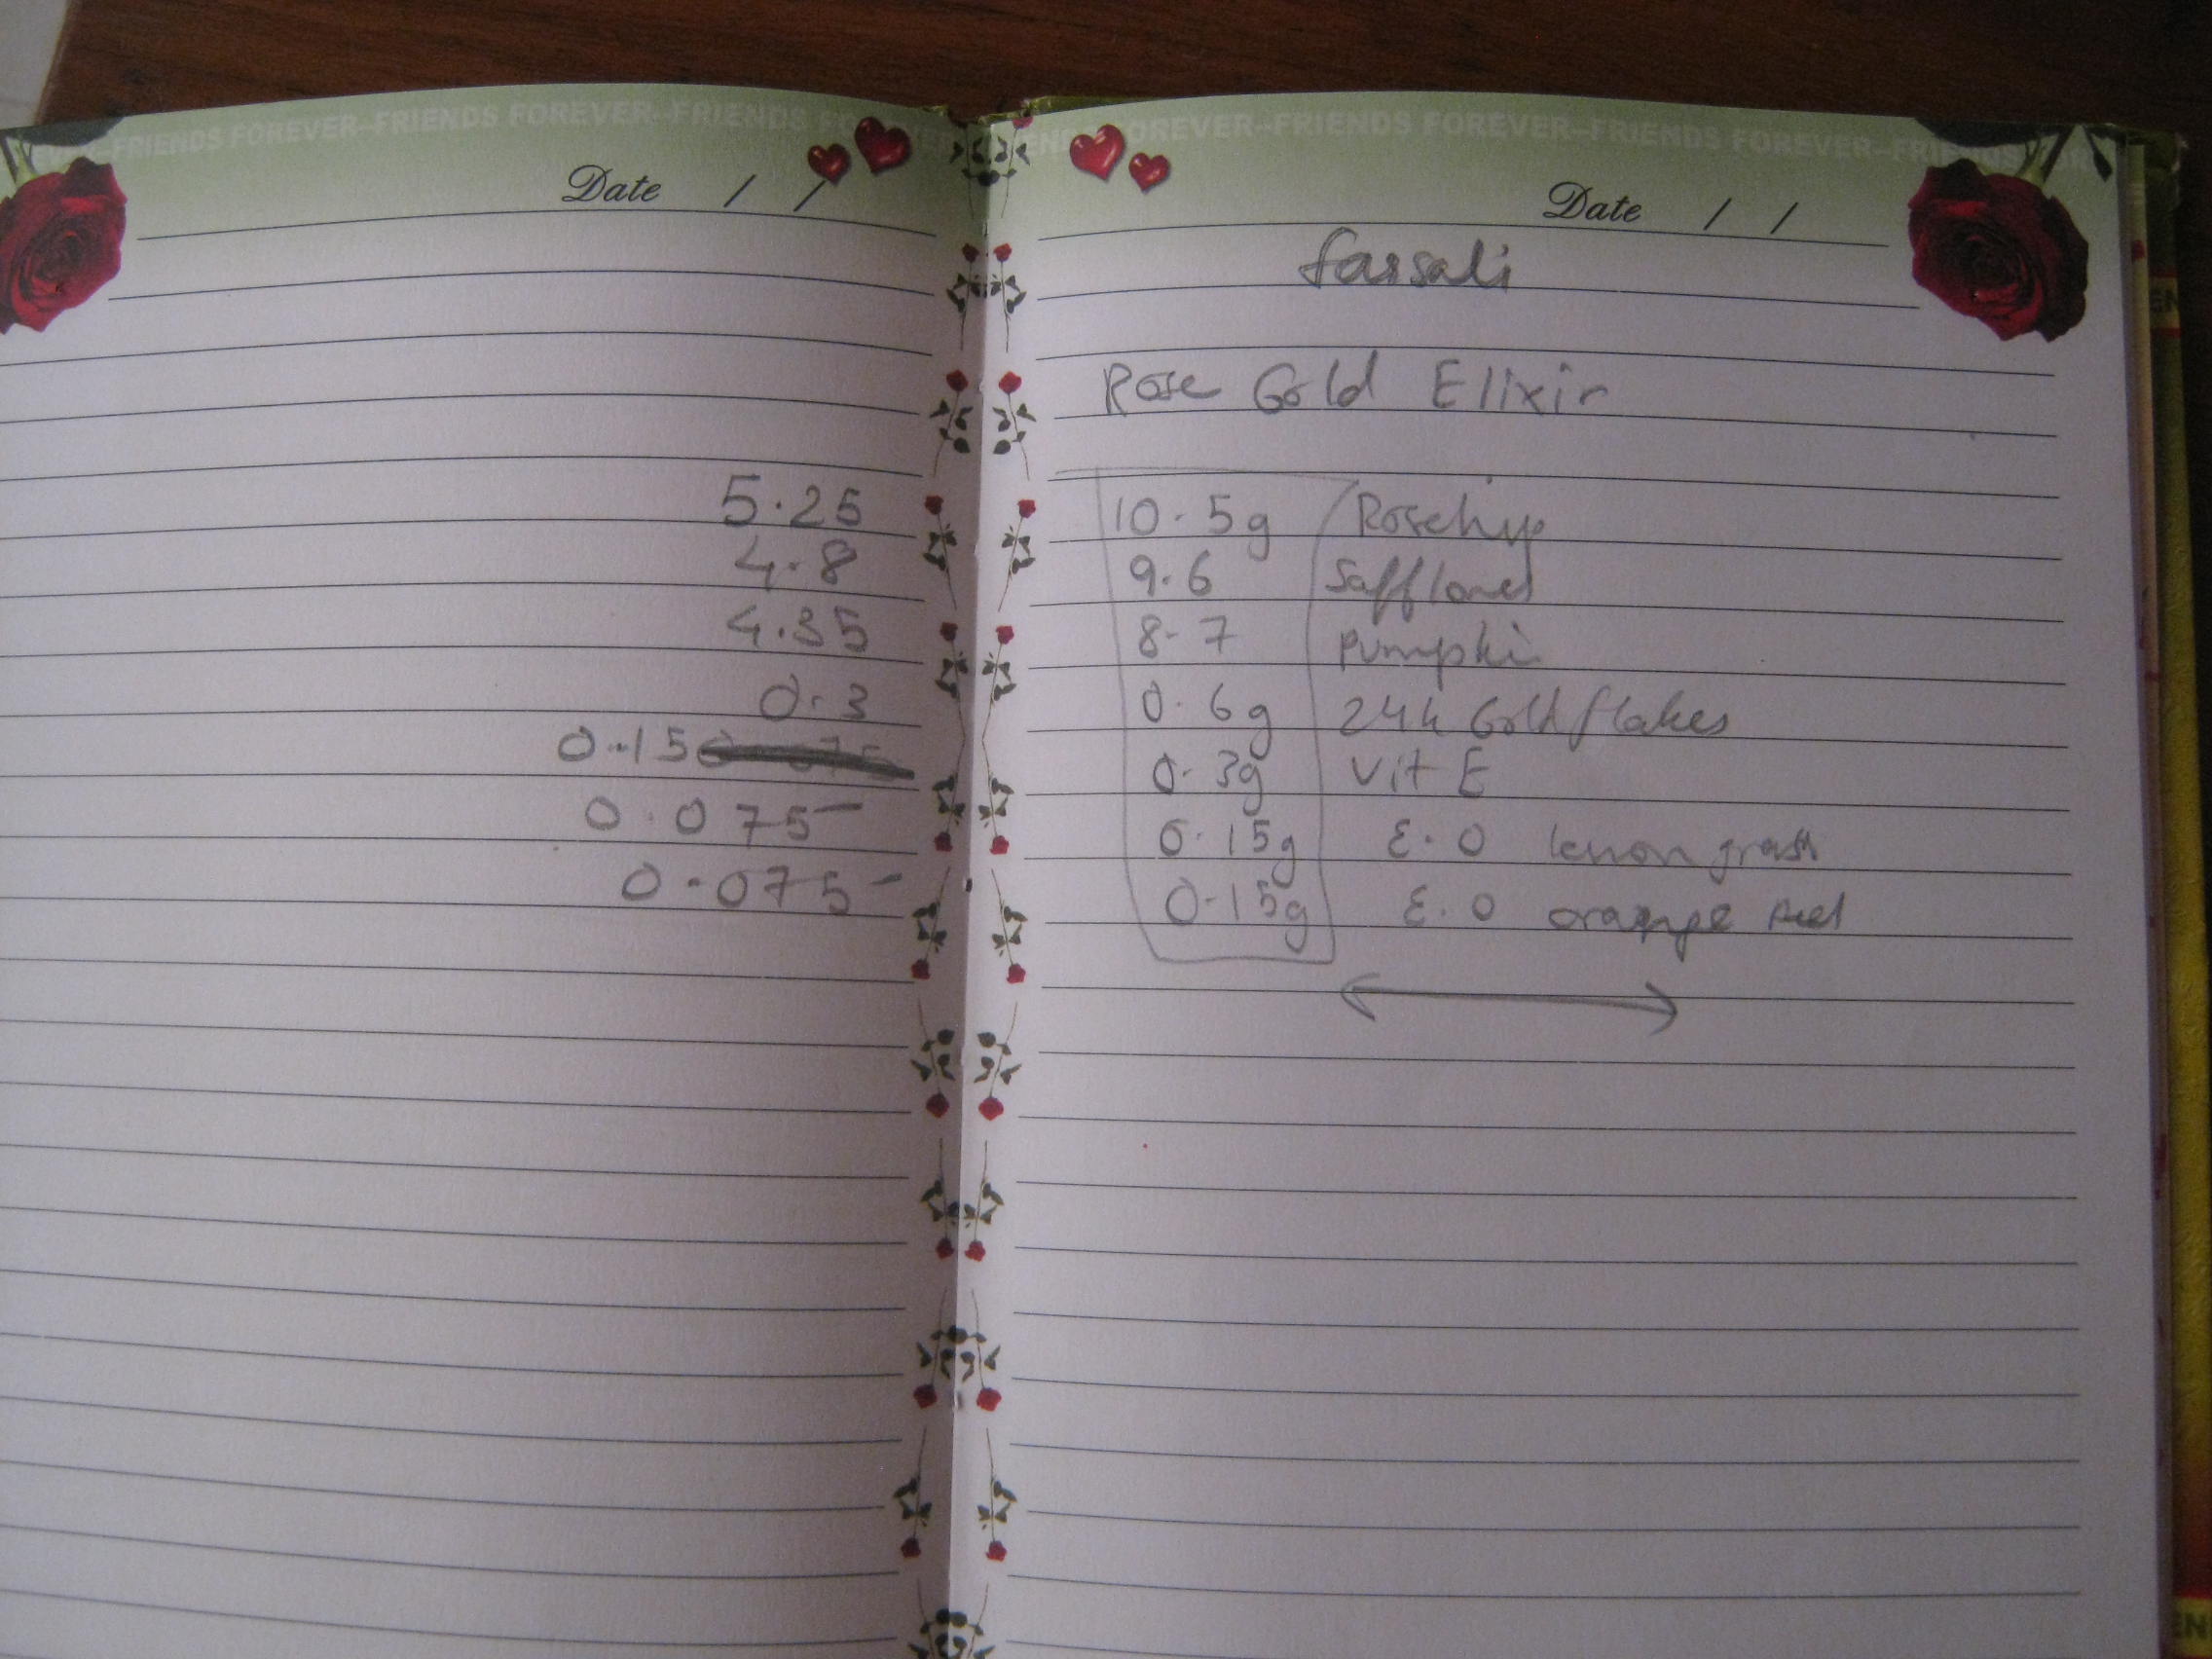 FRIENDS FOREVER--FRIENDS FOREVER--FRIENDS
Date / /
5.25
4.8
4.35
0.3
0.15
0.075
0.075
FOREVER--FRIENDS FOREVER--FRIENDS FOREVER--FRIENDS FOR
Date / /
farsali
Rose Gold Elixir
10.5g Rosehip
9.6 Safflower
8.7 Pumpkin
0.6g 24k Gold flakes
0.3g Vit E
0.15g E.O lemon grass
0.15g E.O orange peel